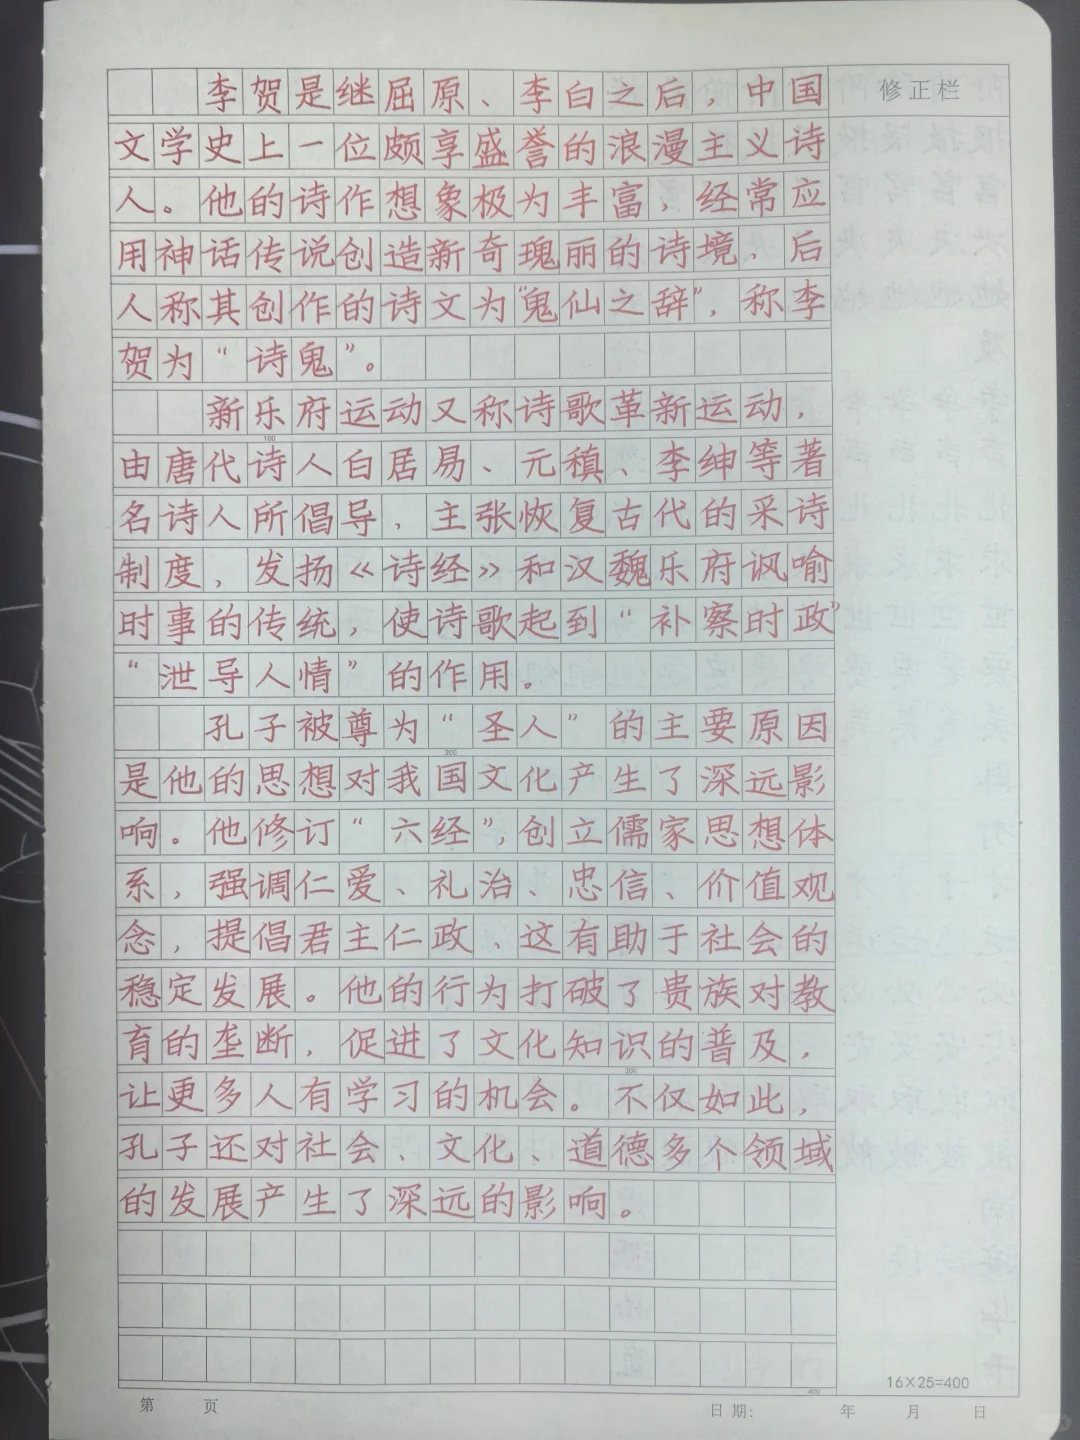 李贺是继屈原、李白之后，中国
修正栏
文学史上一位颇享盛誉的浪漫主义诗
人。他的诗作想象极为丰富，经常应
用神话传说创造新奇瑰丽的诗境、后
人称其创作的诗文为“鬼仙之辞”，称李
贺为“诗鬼”。
新乐府运动又称诗歌革新运动，
100
由唐代诗人白居易、元稹、李绅等著
名诗人所倡导，主张恢复古代的采诗
制度，发扬《诗经》和汉魏乐府讽喻
时事的传统，使诗歌起到“补察时政”
“泄导人情”的作用。
孔子被尊为“圣人”的主要原因
200
是他的思想对我国文化产生了深远影
响。他修订“六经”，创立儒家思想体
系，强调仁爱、礼治、忠信、价值观
念，提倡君主仁政、这有助于社会的
稳定发展。他的行为打破了贵族对教
育的垄断，促进了文化知识的普及，
300
让更多人有学习的机会。不仅如此，
孔子还对社会、文化、道德多个领域
的发展产生了深远的影响。
16×25=400
400
第 页
日期: 年 月 日